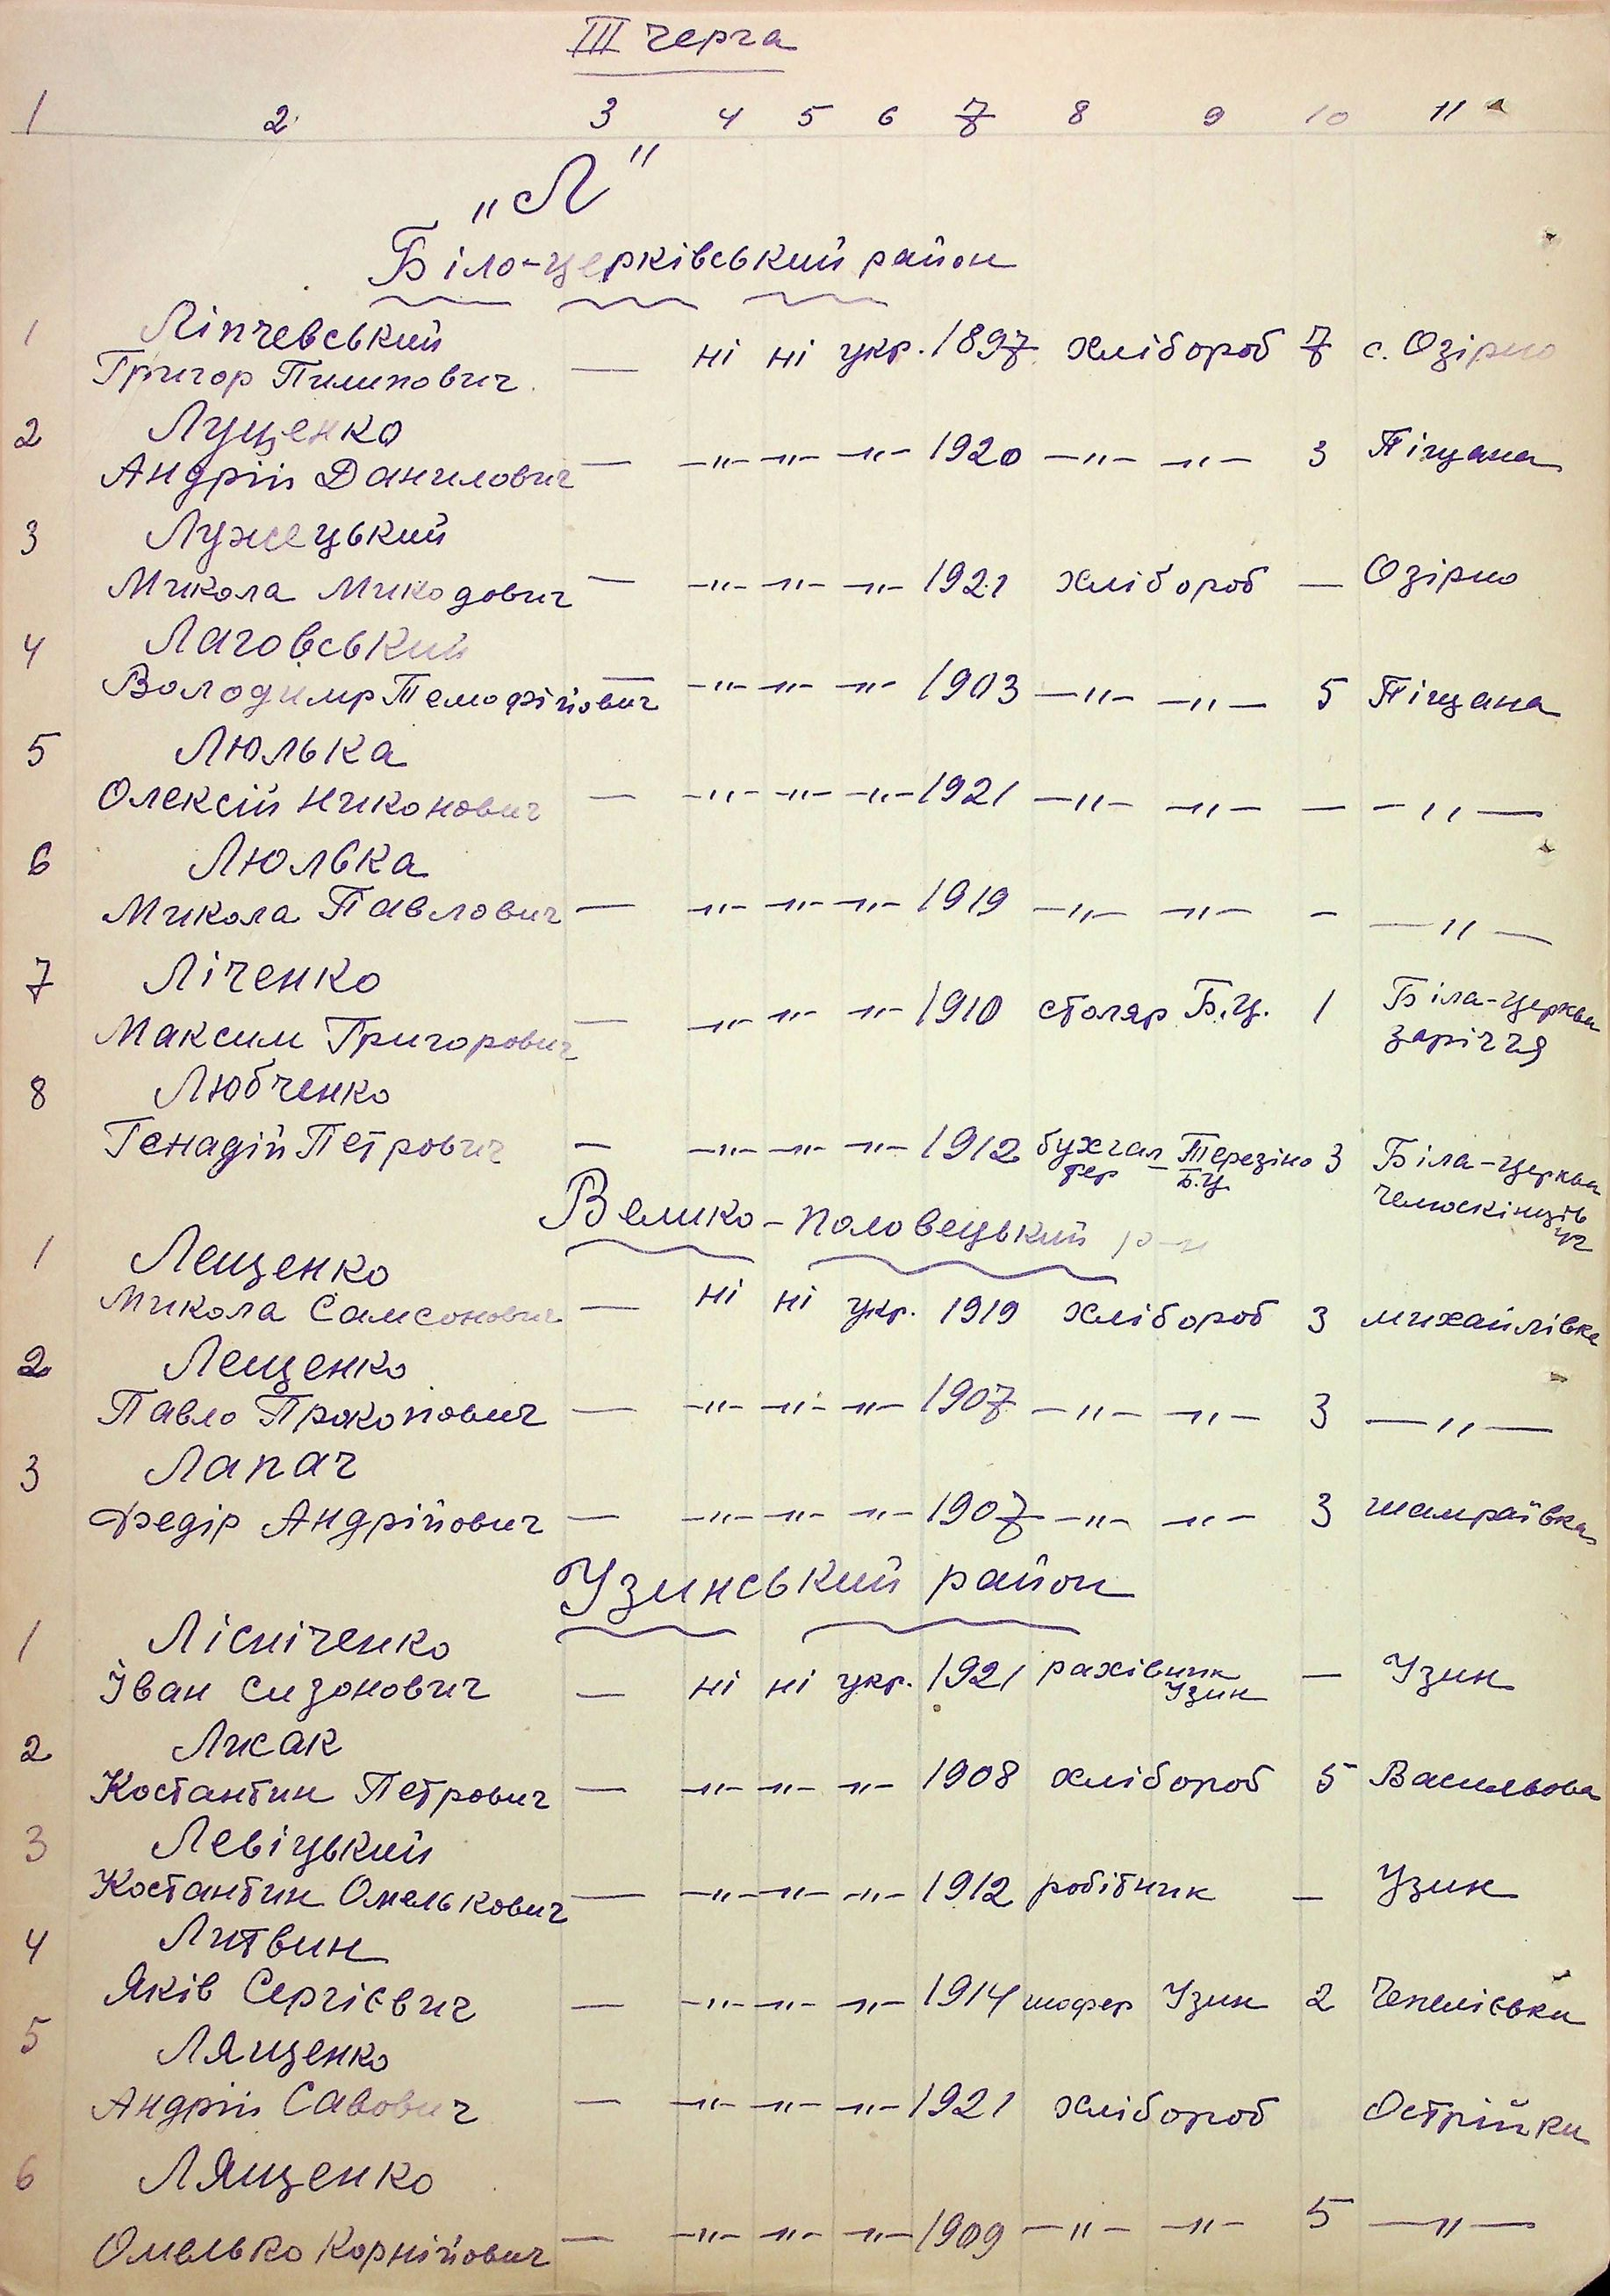 III черга
1 2 3 4 5 6 7 8 9 10 11
„Л"
Біло-церківський район
1 Ліпчевський
Григор Пилипович — ні ні укр. 1897 хлібороб 7 с. Озірно
2 Лущенко
Андрій Данилович — —„— —„— —„— 1920 —„— —„— 3 Піщана
3 Лужецький
Микола Микодович — —„— —„— —„— 1921 хлібороб — Озірно
4 Лаговський
Володимр Темофійович — —„— —„— —„— 1903 —„— —„— 5 Піщана
5 Люлька
Олексій Никонович — —„— —„— —„— 1921 —„— —„— — —„—
6 Люлька
Микола Павлович — —„— —„— —„— 1919 —„— —„— — —„—
7 Ліченко
Максим Григорович — —„— —„— —„— 1910 столяр Б.Ц. 1 Біла-церква
заріччя
8 Любченко
Генадій Петрович — —„— —„— —„— 1912 бухгал- Терезіно 3 Біла-церква
тер Б.Ц. Челюскінців
Велико-половецький р-н
1 Лещенко
Микола Самсонович — ні ні укр. 1919 хлібороб 3 михайлівка
2 Лещенко
Павло Прокопович — —„— —„— —„— 1907 —„— —„— 3 —„—
3 Лапач
Федір Андрійович — —„— —„— —„— 1907 —„— —„— 3 шамраївка
Узинський район
1 Лісніченко
Іван Сизонович — ні ні укр. 1921 рахівник Узин — Узин
2 Лисак
Костантин Петрович — —„— —„— —„— 1908 хлібороб 5 Васильова
3 Левіцький
Костантин Омелькович — —„— —„— —„— 1912 робітник — Узин
4 Литвин
Яків Сергієвич — —„— —„— —„— 1914 шофер Узин 2 Чепелієвка
5 Лященко
Андрій Савович — —„— —„— —„— 1921 хлібороб Острійки
6 Лященко
Омелько Корнійович — —„— —„— —„— 1909 —„— —„— 5 —„—